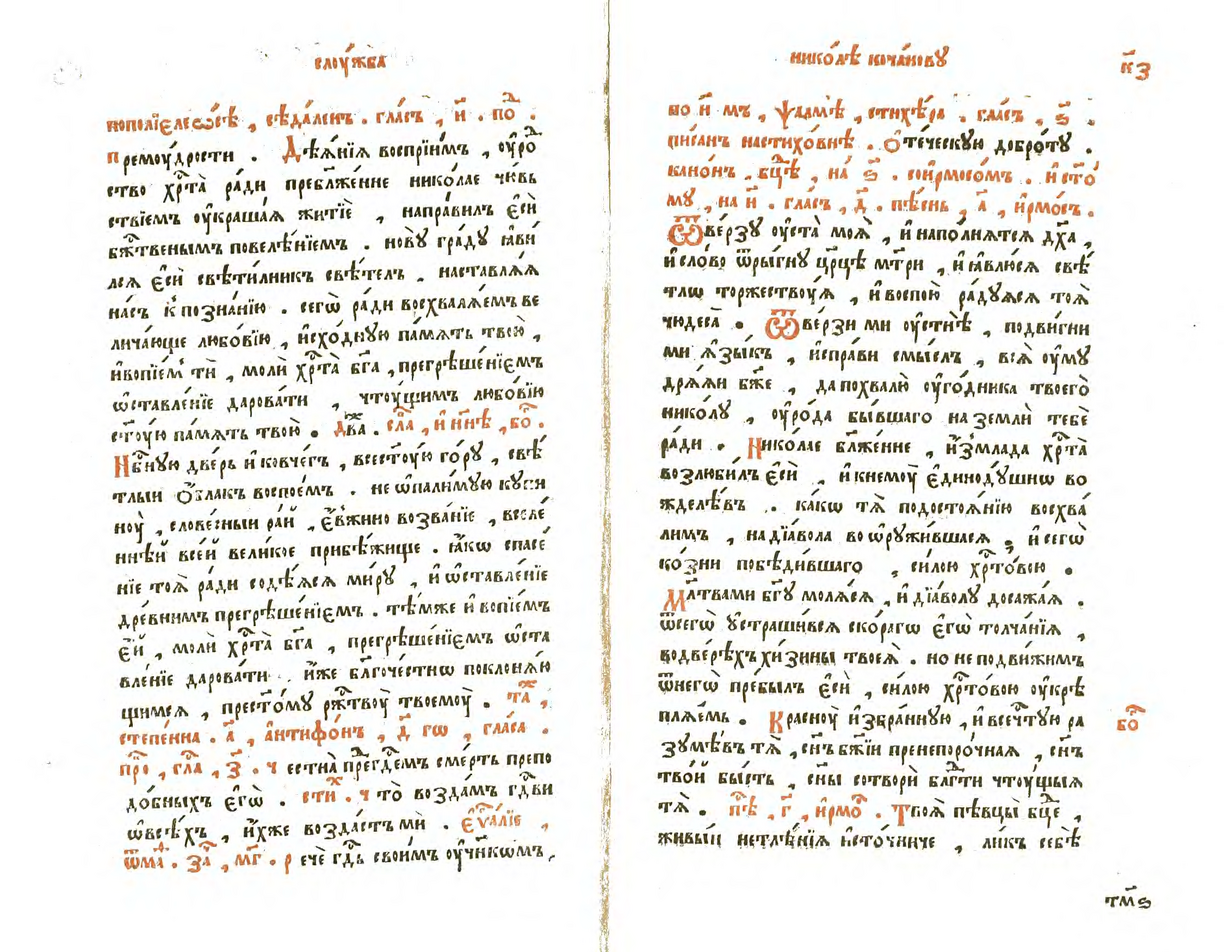 слоу́жба
пополїелео́сѣ , сѣда́ленъ . гла́съ , и҃ . по́д .
премоу́дрости . Дѣѧ́нїѧ воспрїи́мъ , оу҆ро́д
ство хрⷭ҇та̀ ра́ди преблаже́нне нико́лае чю́вь
ствїемъ оу҆краша́ѧ житїѐ , напра́вилъ є҆сѝ
бж҃твенымъ повелѣ́нїемъ . но́вꙋ гра́дꙋ ꙗ҆ви́
лсѧ є҆сѝ свѣти́лникъ свѣ́телъ , наставлѧ́ѧ
на́съ к̾ позна́нїю . сегѡ̀ ра́ди восхвалѧ́емъ ве
лича́юще любо́вїю , и҆схо́дную па́мѧть твою̀ ,
и҆вопїе́м ти , молѝ хрⷭ҇та̀ бг҃а , прегрѣше́нїемъ
ѡ҆ставле́нїе дарова́ти , чтоу́щимъ любо́вїю
ст҃оу́ю па́мѧть твою̀ . два́ . сла́ , и҆ ны́нѣ , бо́ .
Нбⷭ҇ную две́рь и҆ ковче́гъ , всест҃оу́ю го́рꙋ , свѣ́
тлыи ѻ҆́блакъ воспое́мъ . не ѡ҆пали́мꙋю кꙋпи
ноу̀ , слове́сныи ра́й , є҆́ѵжино возва́нїе , вселе́
ннѣ́й все́й вели́кое прибѣ́жище . ꙗ҆́кѡ спасе́
нїе тоѧ̀ ра́ди содѣ́ѧсѧ ми́рꙋ , и҆ ѡ҆ставле́нїе
дре́внимъ прегрѣше́нїемъ . тѣ́мже и҆ вопїе́мъ
є҆́й , молѝ хрⷭ҇та̀ бг҃а , прегрѣше́нїемъ ѡ҆ста
вле́нїе дарова́ти . и҆́же благоче́стнѡ поклонѧ́ю
щимсѧ , прест҃о́мꙋ рж҃твоу̀ твоемоу̀ . та́ж ,
степе́нна . а҃ , а҆нтифо́нъ , д҃ гѡ , гла́са .
про́ , гла́ , з҃ . ч естна̀ пре́дгдⷭ҇емъ сме́рть препо
до́бныхъ є҆гѡ̀ . сти́х . ч то̀ возда́мъ гдⷭ҇ви
ѡ҆всѣ́хъ , и҆́хже возда́стъ ми . є҆ѵⷢ҇а́лїе ,
ѿма́ . за́ , мг҃ . р ечѐ гдⷭ҇ь свои́мъ оу҆чн҃кѡмъ ,
нико́лѣ коча́новꙋ
к҃з
во и҆ мъ , ѱалмѣ̀ , стихѣ́ра . гла́съ , ѕ҃ .
пи́санъ настихо́внѣ . Ѻ҆те́ческꙋю добро́тꙋ .
кано́нъ . бцⷣѣ , на̀ ѕ҃ . сои҆рмосо́мъ . и҆ ст҃о́
мꙋ , на и҃ . гла́съ , д҃ . пѣ́снь , а҃ , и҆рмо́съ .
Ѿве́рзꙋ оу҆ста̀ моѧ̀ , и҆ напо́лнѧтсѧ дх҃а ,
и҆ сло́во ѿры́гнꙋ цр҃цѣ мт҃ри , и҆ ꙗ҆влю́сѧ свѣ́
тлѡ торжествоу́ѧ , и҆ воспою̀ ра́дꙋѧсѧ тоѧ̀
чюдеса̀ . Ѿве́рзи ми оу҆стнѣ̀ , подви́гни
ми ѧ҆зы́къ , и҆спра́ви смы́слъ , всѧ̀ оу҆мꙋ
дрѧ́ѧи бж҃е , да похвалю̀ оу҆го́дника твоего̀
нико́лꙋ , оу҆ро́да бы́вшаго на землѝ тебѐ
ра́ди . Нико́лае блаже́нне , и҆́змлада хрⷭ҇та̀
возлюби́лъ є҆сѝ , и҆ кнемоу̀ є҆динодꙋ́шнѡ во
жделѣ́въ . ка́кѡ тѧ̀ подостоѧ́нїю восхва́
лимъ , на дїа́вола во ѡ҆рꙋжи́вшасѧ , и҆ сегѡ̀
ко́зни побѣди́вшаго , си́лою хрⷭ҇то́вою .
Млⷮвами бг҃ꙋ молѧ́сѧ , и҆ дїа́волꙋ досажа́ѧ .
ѿсегѡ̀ ꙋ҆страши́всѧ ско́рагѡ є҆гѡ̀ толча́нїѧ ,
водве́рѣхъ хи́зины твоеѧ̀ . но не подви́жимъ
ѿнегѡ̀ пре́былъ є҆сѝ , си́лою хрⷭ҇то́вою оу҆крѣ
плѧ́емь . Красноу̀ и҆збра́нную , и҆ всечⷭ҇тꙋю ра
зꙋмѣ́въ тѧ̀ , сн҃ъ бж҃їи пренепоро́чная , сн҃ъ
тво́й бы́сть , сн҃ы сотворѝ благода́ти чтоу́щыѧ
тѧ̀ . пѣ́ , г҃ , и҆рмо́ . Твоѧ̀ пѣвцы̀ бцⷣе ,
живы́й нетлѣ́нїѧ и҆сто́чниче , ли́къ себѣ̀
бо́
тм҃ѕ